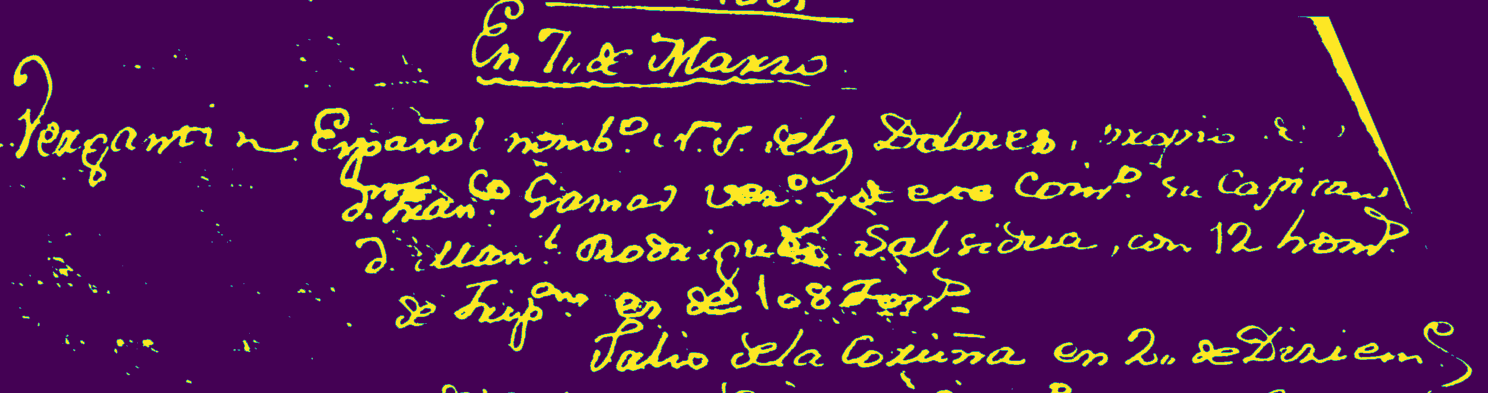 En 7,, de Marzo
Vergantin Español nomb.º N. S. dela Dolores, propio de
d.n Fran.co Gamas vez.º y de ese Com.º su Capitan
d.n Man.l Rodriguez Salsidua, con 12 homb.
de Trip.on es de 108 Ton.
Salio dela Coruña en 2,, de Diziem